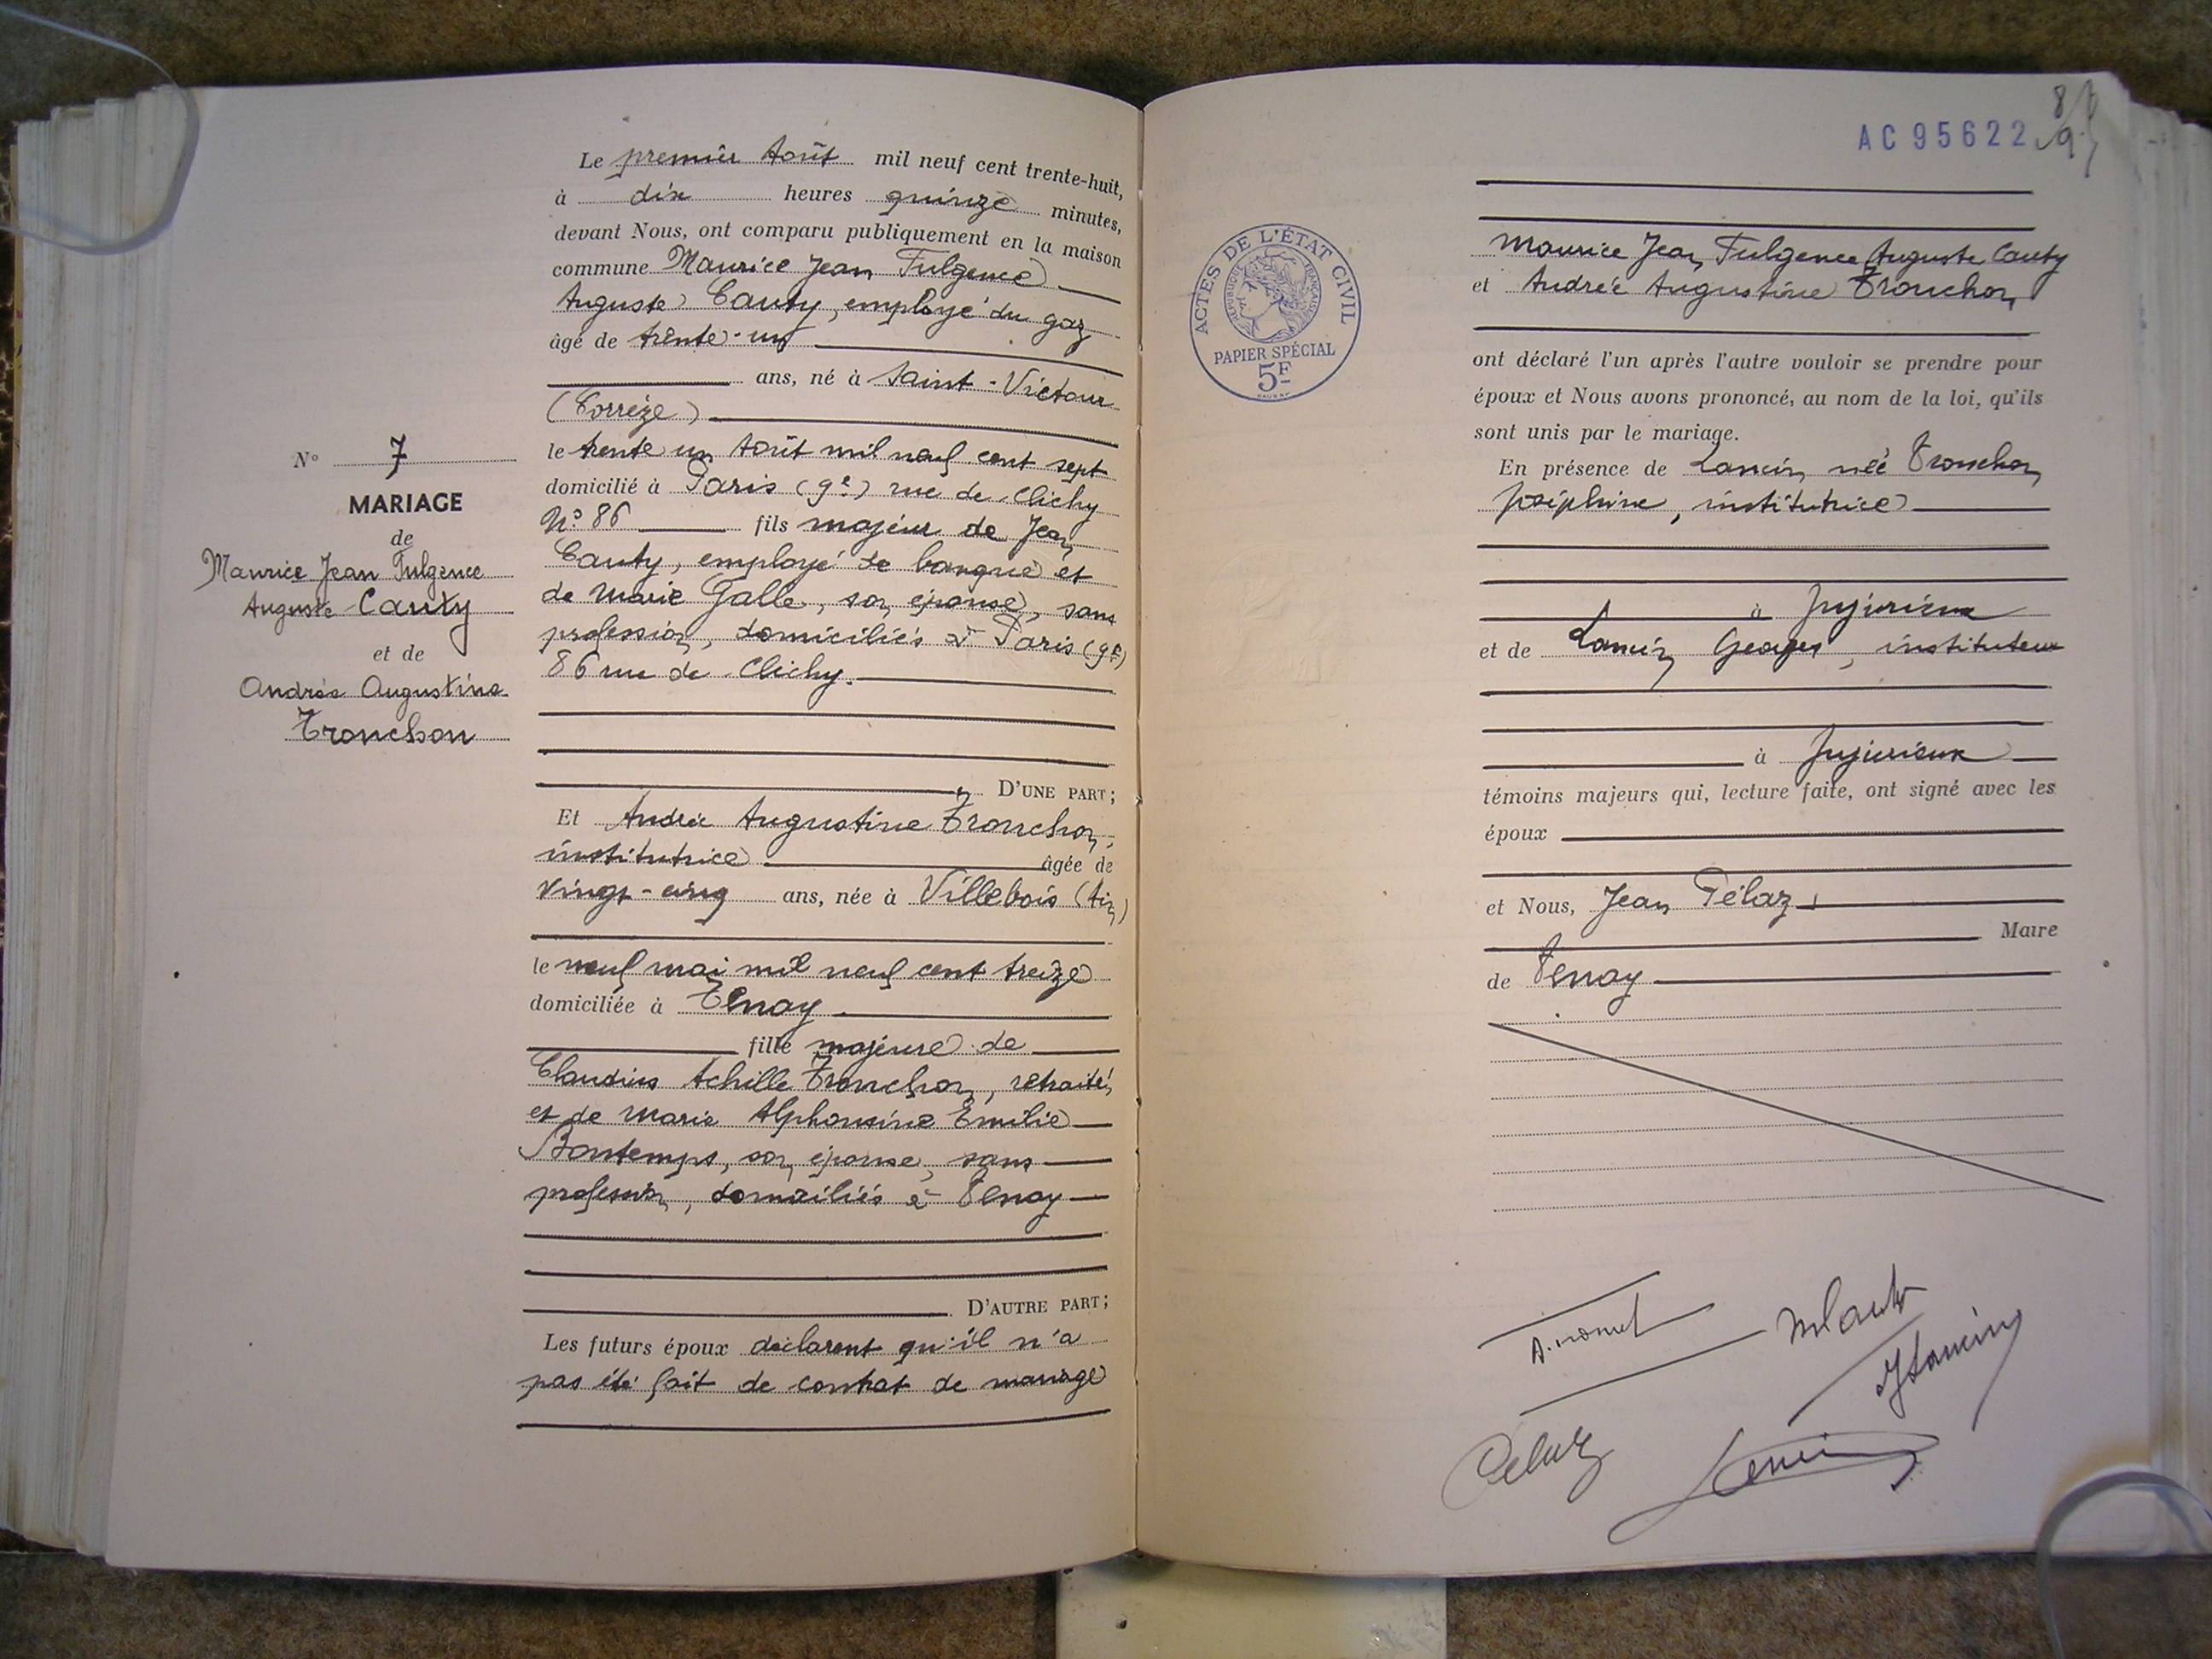 Le premier Août mil neuf cent trente-huit,
à dix heures quinze minutes,
devant Nous, ont comparu publiquement en la maison
commune Maurice Jean Fulgence
Auguste Cauty, employé du gaz
âgé de trente-un
ans, né à Saint-Victour
(Corrèze)
le trente un Août mil neuf cent sept
domicilié à Paris (9e) rue de Clichy
N° 86 fils majeur de Jean
Cauty, employé de banque et
de Marie Galle, son épouse, sans
profession, domiciliés à Paris (9e)
86 rue de Clichy.
D'UNE PART;
N° 7
MARIAGE
de
Maurice Jean Fulgence
Auguste Cauty
et de
Andrée Augustine
Tronchon
Et Andrée Augustine Tronchon,
institutrice âgée de
vingt-cinq ans, née à Villebois (Ain)
le neuf mai mil neuf cent treize
domiciliée à Tenay
fille majeure de
Claudius Achille Tronchon, retraité,
et de Marie Alphonsine Emilie
Bontemps, son épouse, sans
profession, domiciliés à Tenay
D'AUTRE PART;
Les futurs époux déclarent qu'il n'a
pas été fait de contrat de mariage
AC 95622
ACTES DE L'ÉTAT CIVIL
RÉPUBLIQUE FRANÇAISE
PAPIER SPÉCIAL
5F
Maurice Jean Fulgence Auguste Cauty
et Andrée Augustine Tronchon
ont déclaré l'un après l'autre vouloir se prendre pour
époux et Nous avons prononcé, au nom de la loi, qu'ils
sont unis par le mariage.
En présence de Lancin née Tronchon
Joséphine, institutrice
à Jujurieux
et de Lancin Georges, instituteur
à Jujurieux
témoins majeurs qui, lecture faite, ont signé avec les
époux
et Nous, Jean Pélaz,
Maire
de Tenay
MCauty
JLancin
Pelaz
Lancin